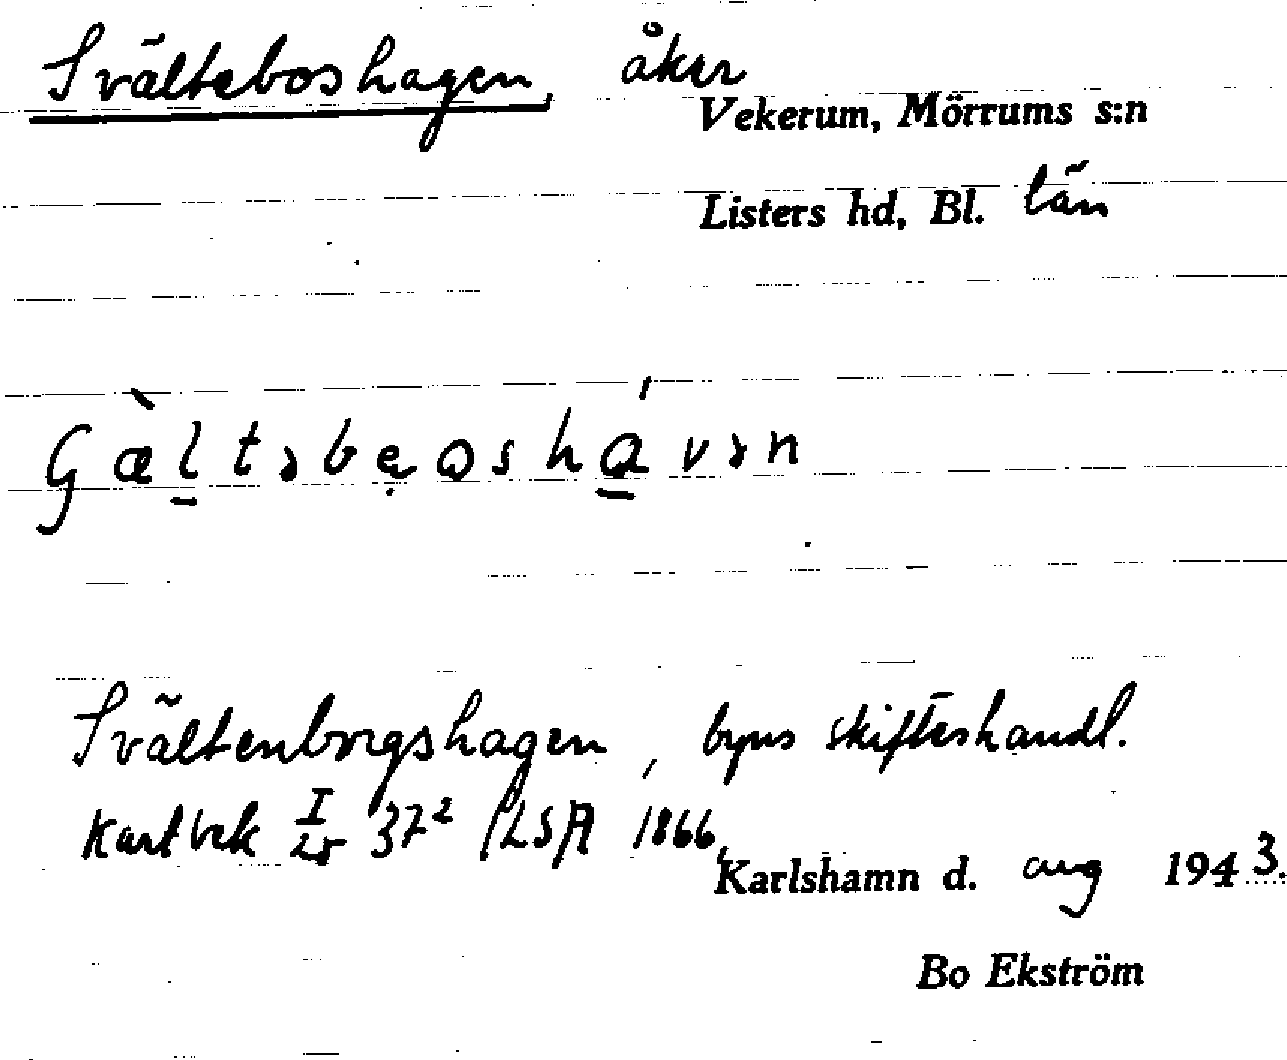 Svälteboshagen, åker
Vekerum, Mörrums s:n
Listers hd, Bl. län
Gæ̀l̠təbẹosh̠á̠vən
Svältenborgshagen, byns skifteshandl.
Kartbek I 37² (LSA) 1866,
Karlshamn d. aug 1943.
Bo Ekström